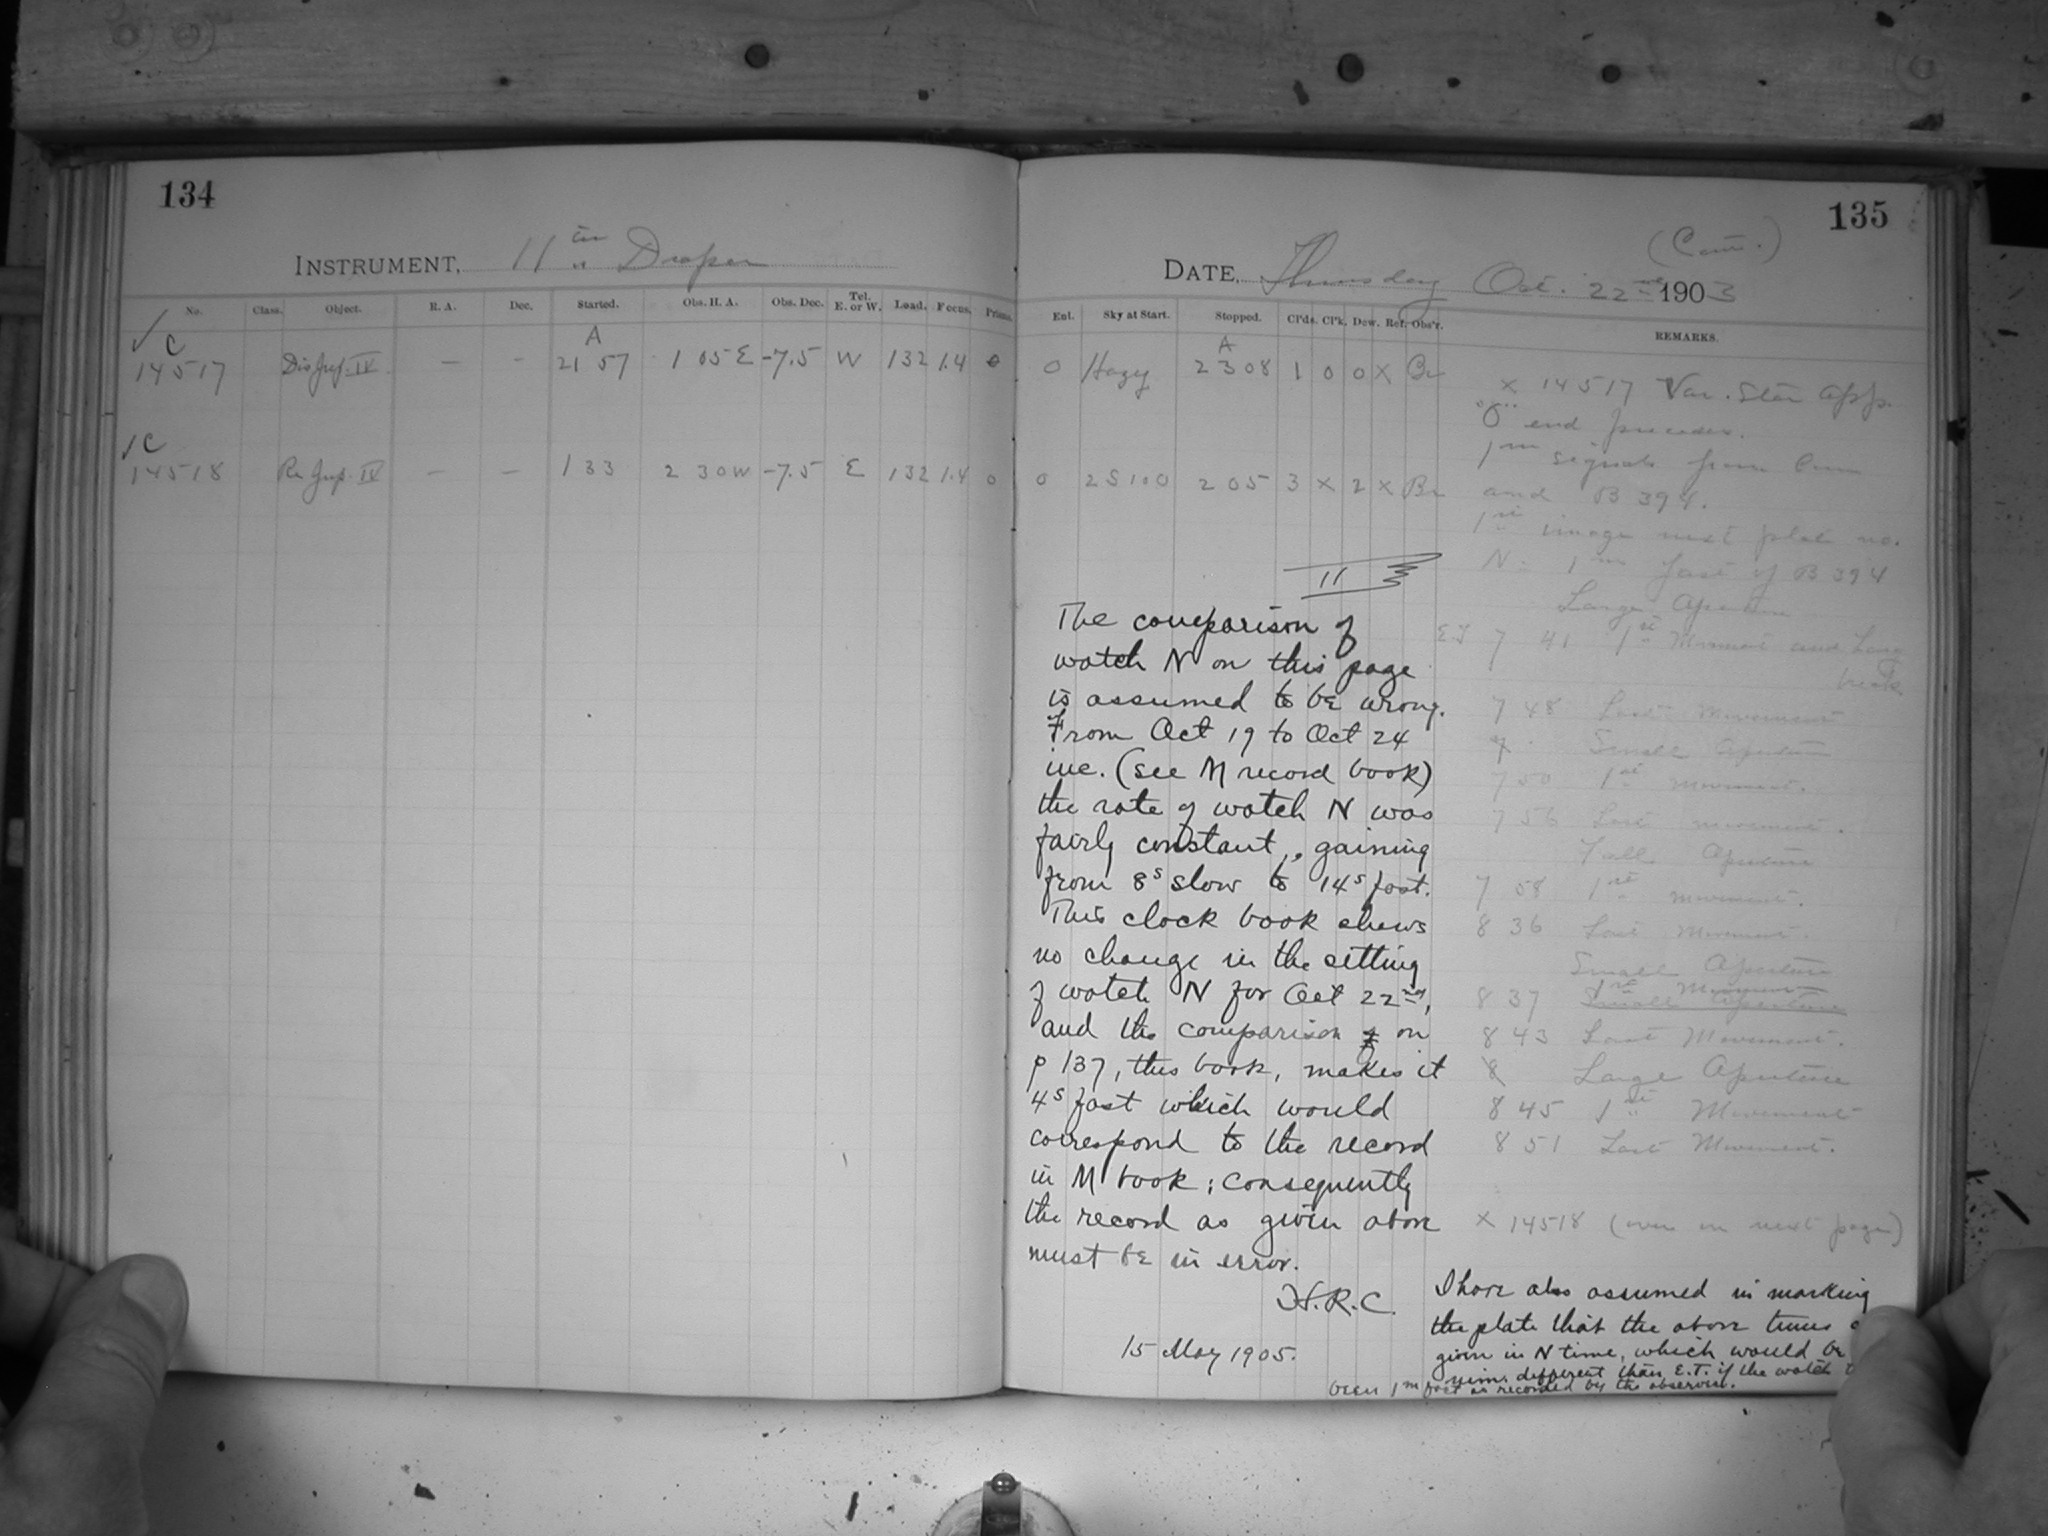 134
INSTRUMENT, 11 in Draper
No. Class. Object. R. A. Dec. Started. Obs. H. A. Obs. Dec. Tel. E. or W. Load. Focus. Prisms.
C A
14517 Dis Jup. IV — - 21 57 1 05 E -7.5 W 132 1.4 0
C
14518 Re Jup. IV — — 1 33 2 30 W -7.5 E 132 1.4 0
135
(Con.)
DATE, Thursday Oct. 22nd 1903
Ent. Sky at Start. Stopped. Cl'ds. Cl'k. Dew. Ref. Obs'r. REMARKS.
A
0 Hazy 23 08 1 0 0 X Br
0 2S100 2 05 3 X 2 X Br
x 14517 Var. Star App.
"O" end precedes.
1m signals from
and B 394.
1st image next plate no.
N = 1m fast of B 394
Large Aperture
E.T 7 41 1st Movement and Long
break
7 48 Last Movement
Small Aperture
7 50 1st movement.
7 56 Last movement.
Full Aperture
7 58 1st movement.
8 36 Last Movement.
Small Aperture
1st Movement
8 37 Small Aperture
8 43 Last Movement.
8 Large Aperture
8 45 1st Movement
8 51 Last Movement.
x 14518 (over on next page)
11
The comparison of
watch N on this page
is assumed to be wrong.
From Oct 19 to Oct 24
inc. (see M record book)
the rate of watch N was
fairly constant, gaining
from 8s slow to 14s fast.
This clock book shews
no change in the setting
of watch N for Oct 22nd,
and the comparison on
p 137, this book, makes it
4s fast which would
correspond to the record
in M book; consequently
the record as given above
must be in error.
H.R.C.
15 May 1905.
I have also assumed in marking
the plate that the above times
given in N time, which would be
1 min. different than E.T. if the watch
been 1m fast as recorded by the observer.